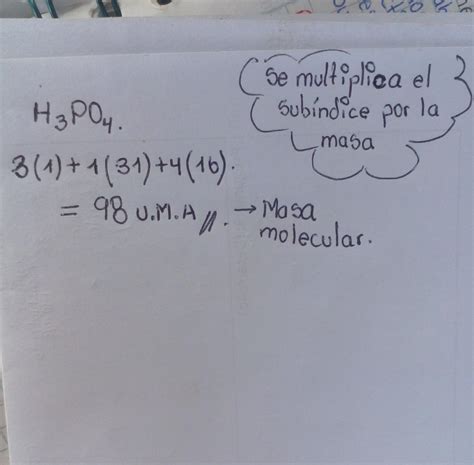 Se multiplica el
subíndice por la
masa
H₃PO₄.
3(1)+1(31)+4(16).
= 98 U.M.A //. → Masa
molecular.